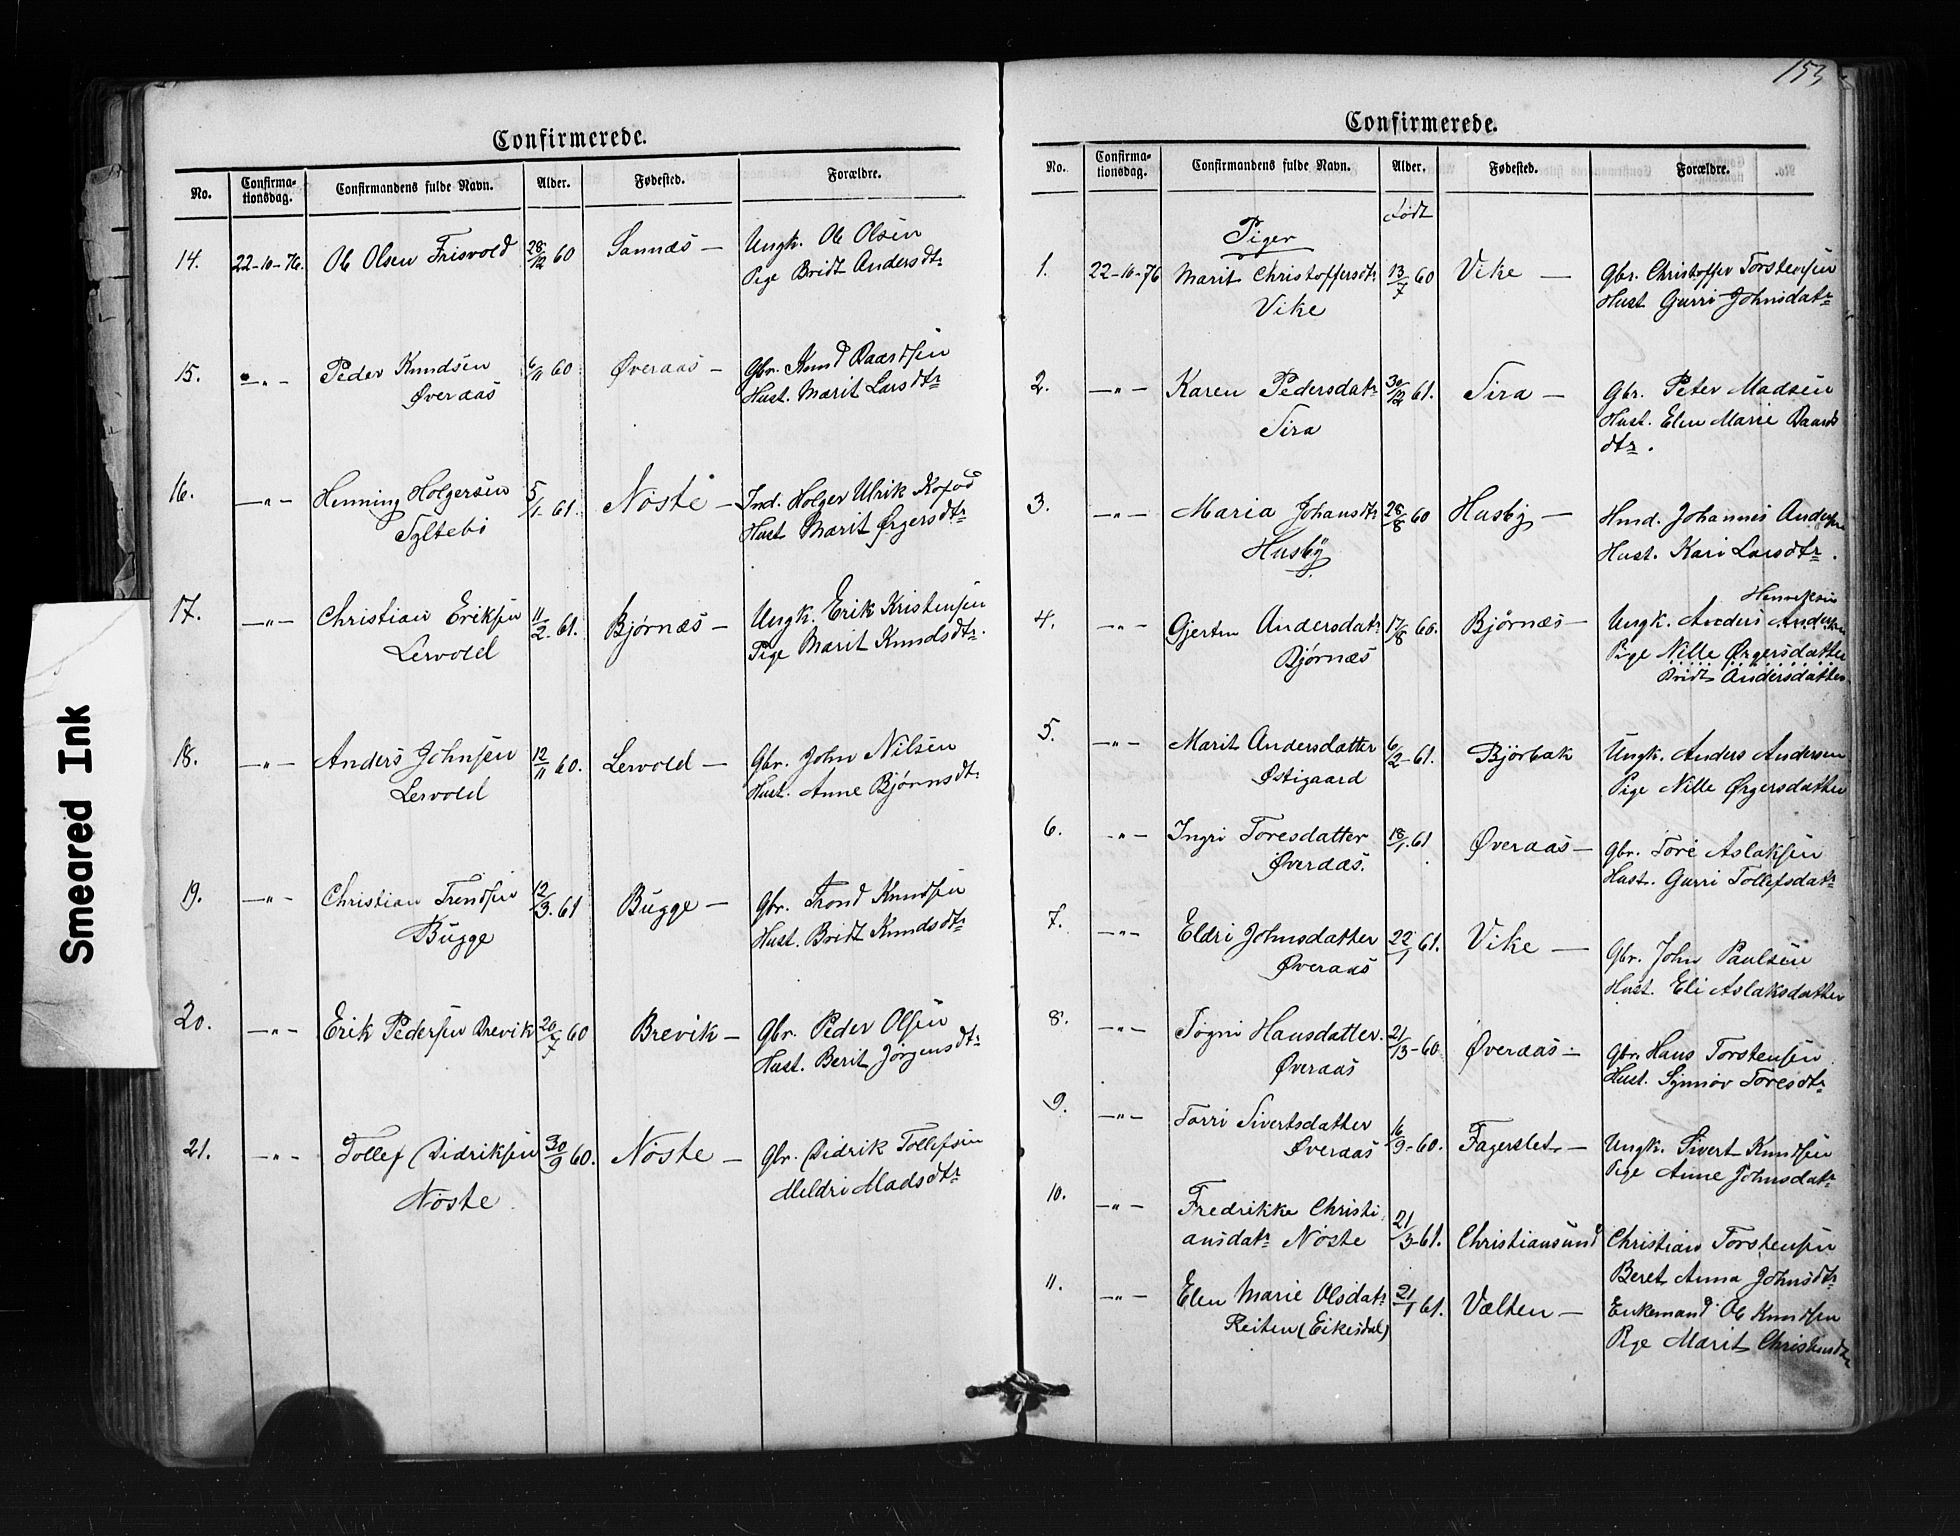 Confirmerede.
No. Confirma-tionsdag. Confirmandens fulde Navn. Alder. Fødested. Forældre.
14. 22-10-76. Ole Olsen Frisvold 28/12 60 Sannæs — Ungk. Ole Olsen
Pige Bridt Andersdtr
15. —„— Peder Knudsen 6/11 60 Øveraas — Gbr. Knud Baardsen
Øveraas Hust. Marit Larsdtr
16. —„— Henning Holgersen 5/1 61. Nöste — Ind. Holger Ulrik Kofod
Syltebö Hust Marit Ørgersdtr
17. —„— Christian Eriksen 11/2 61. Bjørnæs — Ungk. Erik Kristensen
Lervold Pige Marit Knudsdtr.
18. —„— Anders Johnsen 12/11 60. Lervold — Gbr. John Nilsen
Lervold Hust. Anne Bjørnsdtr
19. —„— Christian Trondsen 12/3. 61 Bugge — Gbr. Trond Knudsen
Bugge Hust. Bridt Knudsdtr
20. —„— Erik Pedersen Brevik 20/7 60 Brevik — Gbr. Peder Olsen
Hust. Berit Jørgensdtr
21. —„— Tollef Didriksen 30/9 60. Nöste — Gbr. Didrik Tollefsen
Nöste Meldri Madsdtr
Smeared Ink
153
Confirmerede.
No. Confirma-tionsdag. Confirmandens fulde Navn. Alder. Fødested. Forældre.
Født
Piger
1. 22-10-76 Marit Christoffersdtr 13/7 60 Vike — Gbr. Christoffer Torstensen
Vike Hust Gurri Johnsdatr
2. —„— Karen Pedersdatr 30/12 61. Sira — Gbr. Peter Madsen
Sira Hust. Elen Marie Baards
dtr.
3. —„— Maria Johansdtr 28/8 60 Husby — Hmd. Johannes Andersen
Husby Hust. Kari Larsdtr.
Henriksen
4. —„— Andersdatr 17/8 60. Bjørnæs — Ungk. Anders Andersen
Bjørnæs Pige Nille Ørgersdatter
Bridt Andersdatter
5. —„— Marit Andersdatter 6/2-61. Bjørbak Ungk. Anders Andersen
Østigaard Pige Nille Ørgersdatter
6. —„— Ingri Toresdatter 18/1.61 Øveraas — Gbr. Tore Aslaksen
Øveraas. Hust. Gurri Tollefsdatr
7. —„— Eldri Johnsdatter 22/1 61. Vike — Gbr. John Paulsen
Øveraas Hust. Eli Aslaksdatter
8. —„— Sögni Hansdatter. 21/13-60 Øveraas — Gbr. Hans Torstensen
Øveraas Hust. Synnöv Toresdtr
9. —„— Torri Sivertsdatter 16/9-60. Fagerslet — Ungk. Sivert Knudsen
Øveraas Pige Anne Johnsdatr
10. —„— Fredrikke Christi
ansdatr Nöste 21/3-61. Christiansund Christian Torstensen
Beret Anna Johnsdtr
11. —„— Elen Marie Olsdatr 21/1 61. Vælten — Enkemand Ole Knudsen
Reiten (Eikesdal) Pige Marit Christensdtr